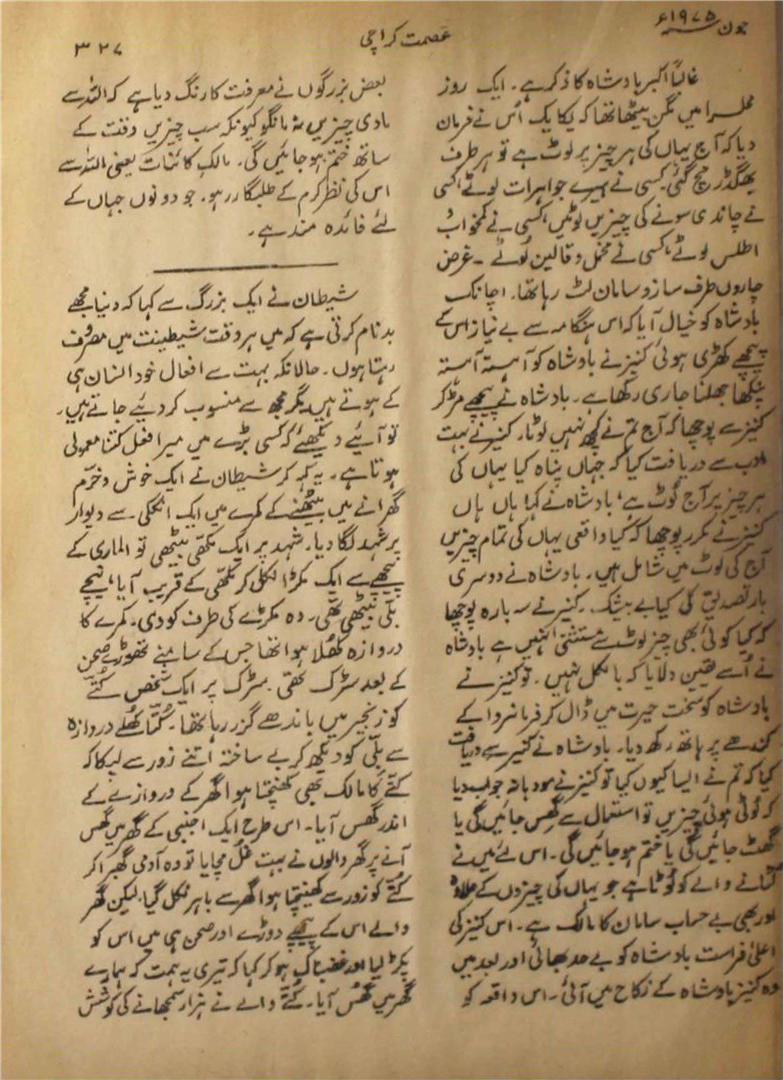 جون ۱۹۷۵ء
عصمت کراچی
۳۲۷
غالباً اکبر بادشاہ کا ذکر ہے۔ ایک روز
محلسرا میں مگن بیٹھا تھا کہ یکا یک اُس نے فرمان
دیا کہ آج یہاں کی ہر چیز پر لوٹ ہے تو ہر طرف
بھگدڑ مچ گئی۔ کسی نے ہیرے جواہرات لوٹے کسی
نے چاندی سونے کی چیزیں لوٹیں، کسی نے کمخواب و
اطلس لوٹے، کسی نے مخمل و قالین لُوٹے ۔ غرض
چاروں طرف ساز و سامان لٹ رہا تھا۔ اچانک
بادشاہ کو خیال آیا کہ اس ہنگامہ سے بے نیاز اس کے
پیچھے کھڑی ہوئی کنیز نے بادشاہ کو آہستہ آہستہ
پنکھا جھلنا جاری رکھا ہے۔ بادشاہ نے پیچھے مڑ کر
کنیز سے پوچھا کہ آج تم نے کچھ نہیں لوٹا۔ کنیز نے بہت
ادب سے دریافت کیا کہ جہاں پناہ کیا یہاں کی
ہر چیز پر آج لُوٹ ہے، بادشاہ نے کہا! ہاں ہاں
کنیز نے مکرر پوچھا کہ کیا واقعی یہاں کی تمام چیزیں
آج کی لوٹ میں شامل ہیں۔ بادشاہ نے دوسری
بار تصدیق کی کیا بے بیشک۔ کنیز نے سہ بارہ پوچھا
کہ کیا کوئی بھی چیز لوٹ سے مستثنیٰ نہیں ہے بادشاہ
نے اُسے یقین دلایا کہ بالکل نہیں۔ تو کنیز نے
بادشاہ کو سخت حیرت میں ڈال کر فرمانروا کے
کندھے پر ہاتھ رکھ دیا۔ بادشاہ نے کنیز سے دریافت
کیا کہ تم نے ایسا کیوں کیا تو کنیز نے مودبانہ جواب دیا
کہ لُوٹی ہوئی چیزیں تو استعمال سے گھس جائیں گی یا
گھٹ جائیں گی یا ختم ہو جائیں گی۔ اس لئے میں نے
لُٹانے والے کو لُوٹا ہے جو یہاں کی چیزوں کے علاوہ
اور بھی بے حساب سامان کا مالک ہے۔ اس کنیز کی
اعلیٰ فراست بادشاہ کو بے حد بھائی اور بعد میں
وہ کنیز بادشاہ کے نکاح میں آئی۔ اس واقعہ کو
بعض بزرگوں نے معرفت کا رنگ دیا ہے کہ اللہ سے
مادی چیزیں نہ مانگو کیونکہ سب چیزیں وقت کے
ساتھ ختم ہو جائیں گی۔ مالکِ کائنات یعنی اللہ سے
اس کی نظرِ کرم کے طلبگار رہو۔ جو دونوں جہاں کے
لئے فائدہ مند ہے۔
شیطان نے ایک بزرگ سے کہا کہ دنیا مجھے
بدنام کرتی ہے کہ میں ہر وقت شیطینت میں مصروف
رہتا ہوں۔ حالانکہ بہت سے افعال خود انسان ہی
کے ہوتے ہیں مگر مجھ سے منسوب کر دیئے جاتے ہیں۔
تو آیئے دیکھئے کہ کسی بڑے میں میرا فعل کتنا معمولی
ہوتا ہے۔ یہ کہہ کر شیطان نے ایک خوش و خرّم
گھرانے میں بیٹھنے کے کمرے میں ایک انگلی سے دیوار
پر شہد لگا دیا۔ شہد پر ایک مکھی بیٹھی تو الماری کے
پیچھے سے ایک مکڑا نکل کر مکھی کے قریب آیا، نیچے
بلی بیٹھی تھی۔ وہ مکڑے کی طرف کودی۔ کمرے کا
دروازہ کھُلا ہوا تھا جس کے سامنے تھوڑے صحن
کے بعد سڑک تھی۔ سڑک پر ایک شخص کتے
کو زنجیر میں باندھے گزر رہا تھا۔ کُتا کھلے دروازہ
سے بلّی کو دیکھ کر بے ساختہ اتنے زور سے لپکا کہ
کتے کا مالک بھی کھنچتا ہوا گھر کے دروازے کے
اندر گھس آیا۔ اس طرح ایک اجنبی کے گھر میں گھس
آنے پر گھر والوں نے بہت غُل مچایا تو وہ آدمی گھبرا کر
کُتے کو زور سے کھینچتا ہوا گھر سے باہر نکل گیا، لیکن گھر
والے اس کے پیچھے دوڑے اور صحن ہی میں اس کو
پکڑ لیا اور غضبناک ہو کر کہا کہ تیری یہ ہمت کہ ہمارے
گھر میں گھُس آیا۔ کُتّے والے نے ہزار سمجھانے کی کوشش